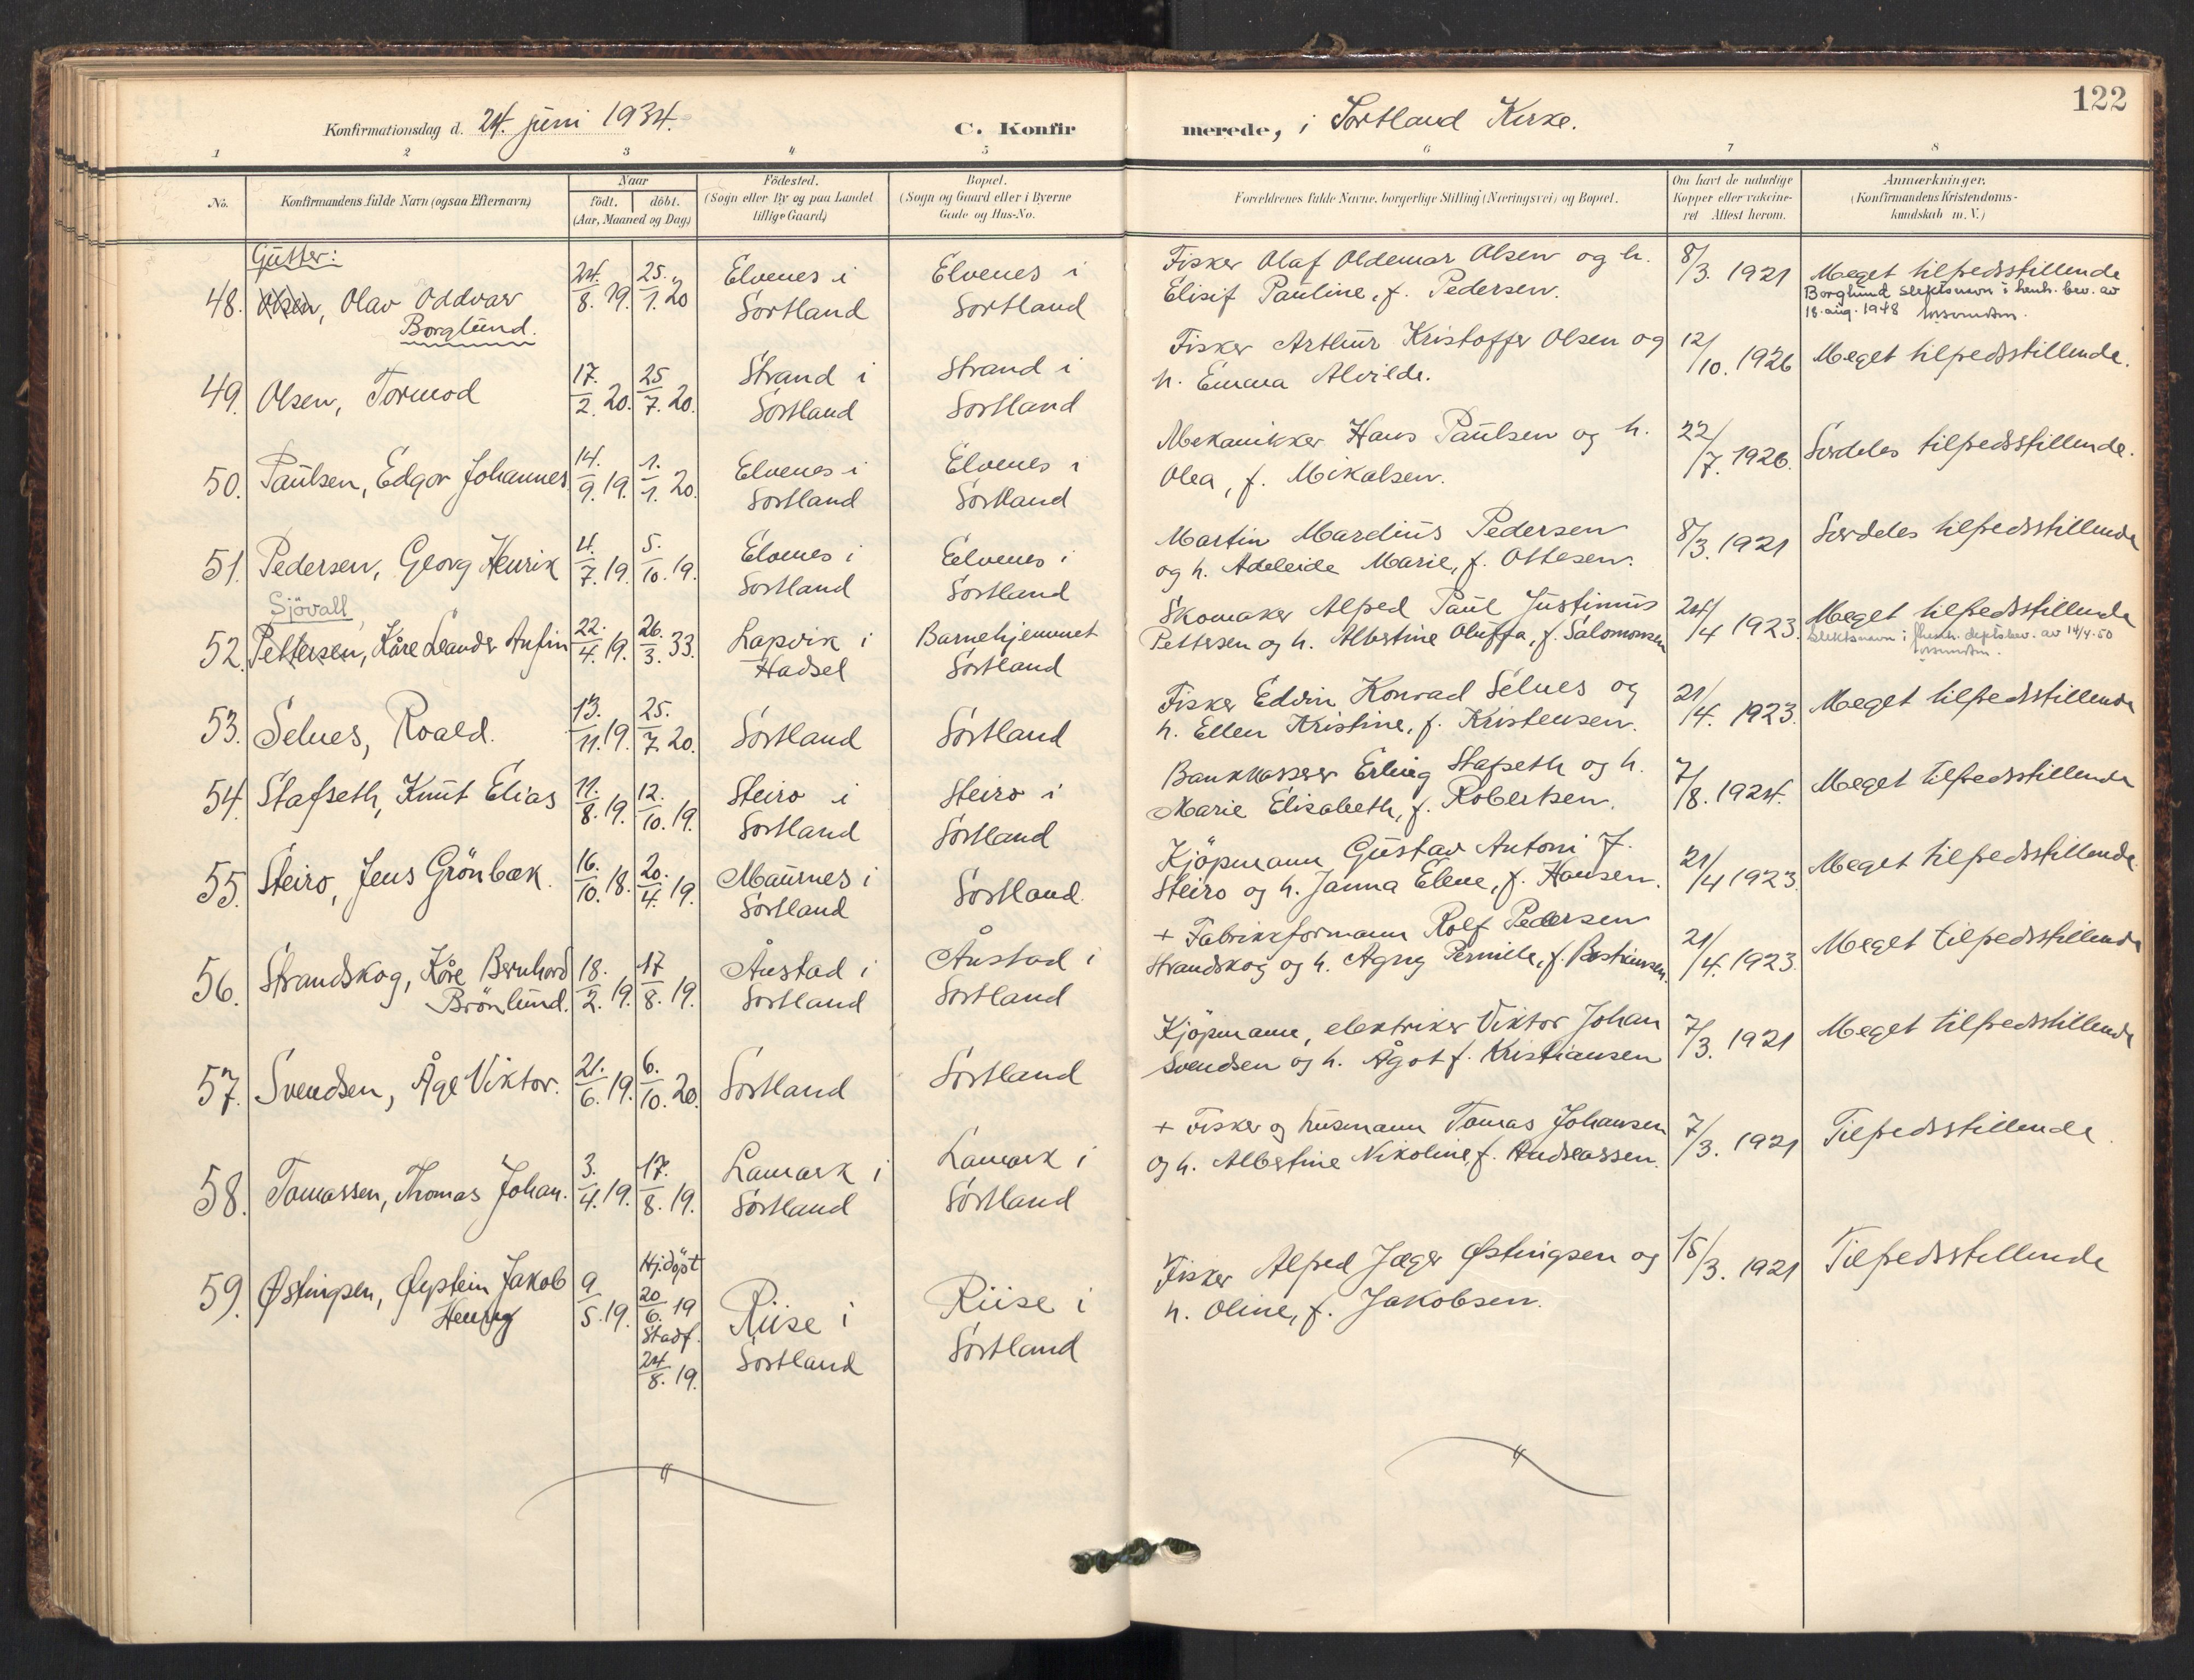 122
Konfirmationsdag d. 24. juni 1934. C. Konfirmerede, i Sortland Kirke.
1 2 3 4 5 6 7 8
No.
Konfirmandens fulde Navn (ogsaa Efternavn)
Naar
födt. döbt.
(Aar, Maaned og Dag)
Födested.
(Sogn eller By og paa Landet
tillige Gaard)
Bopæl.
(Sogn og Gaard eller i Byerne
Gade og Hus-No.
Forældrenes fulde Navne, borgerlige Stilling (Næringsvei) og Bopæl.
Om havt de naturlige
Kopper eller vakcine-
ret Attest herom.
Anmærkninger.
(Konfirmandens Kristendoms-
kundskab m. V.)
Gutter:
48. Olsen, Olav Oddvar
Borglund.
24./8. 19. 25./1. 20
Elvenes i
Sortland
Elvenes i
Sortland
Fisker Olaf Oldemar Olsen og h.
Elisif Pauline, f. Pedersen.
8/3. 1921
Meget tilfredsstillende
Borglund slektsnavn i henh. bev. av
18. aug. 1948
49. Olsen, Tormod
17./2. 20. 25/7. 20.
Strand i
Sortland
Strand i
Sortland
Fisker Arthur Kristoffer Olsen og
h. Emma Alvilde.
12/10. 1926
Meget tilfredsstillende.
50. Paulsen, Edgar Johannes
14./9. 19. 1./1. 20.
Elvenes i
Sortland
Elvenes i
Sortland
Mekanikker Hans Paulsen og h.
Olea, f. Mikalsen.
22/7. 1926.
Særdeles tilfredsstillende.
51. Pedersen, Georg Henrik
4./7. 19. 5./10. 19.
Elvenes i
Sortland
Elvenes i
Sortland
Martin Mardius Pedersen
og h. Adeleide Marie, f. Ottesen.
8/3. 1921
Særdeles tilfredsstillende
Sjövall,
52. Pettersen, Kåre Leander Anfin
22./4. 19. 26./3. 33.
Lapvik i
Hadsel
Barnehjemmet
Sortland
Skomaker Alfred Paul Justinus
Pettersen og h. Albertine Oluffa, f. Salomonsen
24/4 1923.
Meget tilfredsstillende
Slektsnavn i henh. deptsbev. av 14/4.50
53. Selnes, Roald.
13./11. 19. 25./7. 20.
Sortland
Sortland
Fisker Edvin Konrad Selnes og
h. Ellen Kristine, f. Kristensen.
21/4. 1923.
Meget tilfredsstillende
54. Stafseth, Knut Elias
11./8. 19. 12./10. 19.
Steiro i
Sortland
Steiro i
Sortland
Bankkasserer Erling Stafseth og h.
Marie Elisabeth, f. Robertsen.
7/8. 1924.
Meget tilfredsstillende
55. Steiro, Jens Grönbæk.
16./10. 18. 20./4. 19.
Maurnes i
Sortland
Sortland
Kjöpmann Gustav Antoni J.
Steiro og h. Janna Elene, f. Hansen.
21/4 1923.
Meget tilfredsstillende.
56. Strandskog, Kåre Bernhard
Brönlund.
18./2. 19. 17/8. 19.
Åustad i
Sortland
Åustad i
Sortland
+ Fabrikkformann Rolf Pedersen
Strandskog og h. Agny Pernille, f. Bastiansen.
21/4. 1923.
Meget tilfredsstillende
57. Svendsen, Åge Viktor.
21./6. 19. 6./10. 20.
Sortland
Sortland
Kjöpmann, elektriker Viktor Johan
Svendsen og h. Ågot f. Kristiansen
7/3. 1921
Meget tilfredsstillende
58. Tomassen, Thomas Johan.
3./4. 19. 17./8. 19.
Lamark i
Sortland
Lamark i
Sortland
+ Fisker og husmann Tomas Johansen
og h. Albertine Nikoline, f. Andreassen.
7/3. 1921
Tilfredsstillende.
59. Østingsen, Øystein Jakob
Henry
9/5. 19. Hj.döpt
20/6. 19
Stadf.
24/8. 19.
Riise i
Sortland
Riise i
Sortland
Fisker Alfred Jæger Østingsen og
h. Oline, f. Jakobsen.
15/3. 1921
Tilfredsstillende